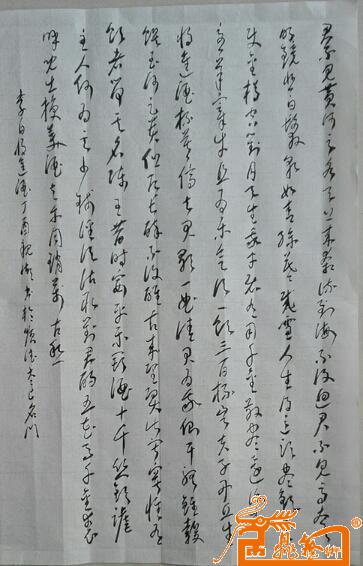 君不见黄河之水天上来奔流到海不复回君不见高堂
明镜悲白发朝如青丝暮成雪人生得意须尽欢
莫使金樽空对月天生我才必有用千金散尽还复来
烹羊宰牛且为乐会须一饮三百杯岑夫子丹丘生
将进酒杯莫停与君歌一曲请君为我倾耳听钟鼓
馔玉何足贵但愿长醉不复醒古来圣贤皆寂寞惟有
饮者留其名陈王昔时宴平乐斗酒十千恣欢谑
主人何为言少钱径须沽取对君酌五花马千金裘
呼儿出换美酒与尔同销万古愁
李白将进酒丁酉